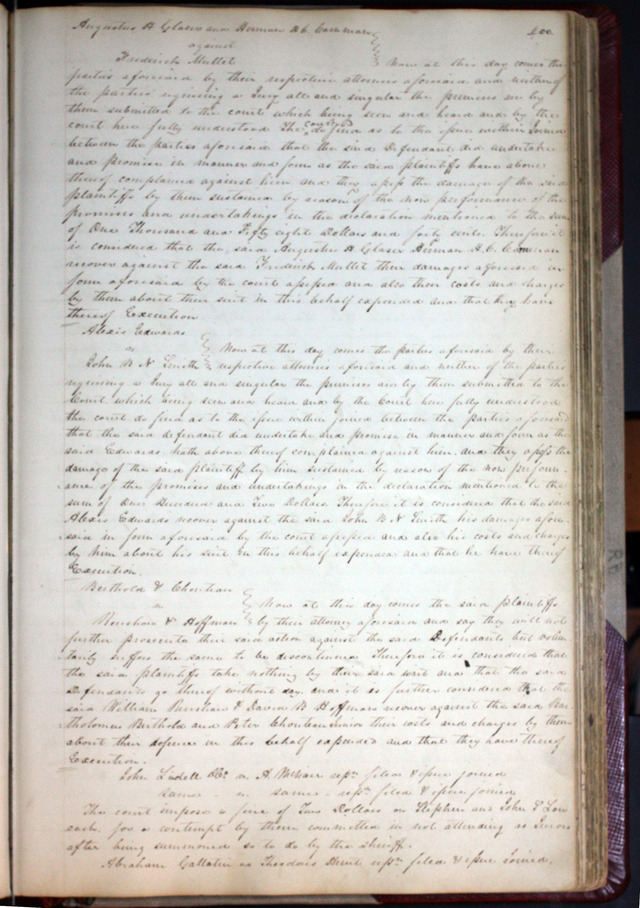 Augustus H Glaser and Herman H. C. Cammann 200.
against
Frederick Mullet Now at this day comes the
parties aforesaid by their respective attornies aforesaid and neither of
the parties requiring a Jury all and singular the premises are by
them submitted to the court which being seen and heard and by the
court here fully understood The court do find as to the issue within joined
between the parties aforesaid that the said Defendant did undertake
and promise in manner and form as the said plaintiffs have above
thereof complained against him and they assess the damage of the said
plaintiffs by them sustained by reason of the non performance of the
promises and undertakings in the declaration mentioned to the sum
of One Thousand and Fifty eight Dollars and forty cents. Therefore it
is considered that the said Augustus H Glaser Herman H. C. Cammann
recover against the said Frederick Mullet their damages aforesaid in
form aforesaid by the court assessed and also their costs and charges
by them about their suit in this behalf expended and that they have
thereof Execution
Alexis Edwards
vs Now at this day comes the parties aforesaid by their
John B N Smith respective attornies aforesaid and neither of the parties
requiring a Jury all and singular the premises are by them submitted to the
Court which being seen and heard and by the Court here fully understood
the court do find as to the issue within joined between the parties aforesaid
that the said defendant did undertake and promise in manner and form as the
said Edwards hath above thereof complained against him. and they assess the
damage of the said plaintiff by him sustained by reason of the non perform-
ance of the promises and undertakings in the declaration mentioned to the
sum of One Hundred and Two Dollars Therefore it is considered that the said
Alexis Edwards recover against the said John B N Smith his damages afore-
said in form aforesaid by the court assessed and also his costs and charges
by him about his suit in this behalf expended and that he have thereof
Execution.
Berthold & Chouteau
vs Now at this day comes the said plaintiffs
Renshaw & Hoffman by their attorney aforesaid and say they will not
further prosecute their said action against the said Defendants but volun-
tarily suffers the same to be discontinued Therefore it is considered that
the said plaintiffs take nothing by their said writ and that the said
Defendants go thereof without day. and it is further considered that the
said William Renshaw & David B. Hoffman recover against the said Bar-
tholomew Berthold and Peter Chouteau Junior their costs and charges by them
about their defence in this behalf expended and that they have thereof
Execution.
John Lindell &Co vs A. McNair repn filed & issue joined
Same vs same repn filed & issue joined
The court impose a fine of Two Dollars on Stephen and John
each, for a contempt by them committed in not attending as Jurors
after being summoned so to do by the sheriff.
Abraham Gallatin vs Theodore Hunt repn filed & issue joined.